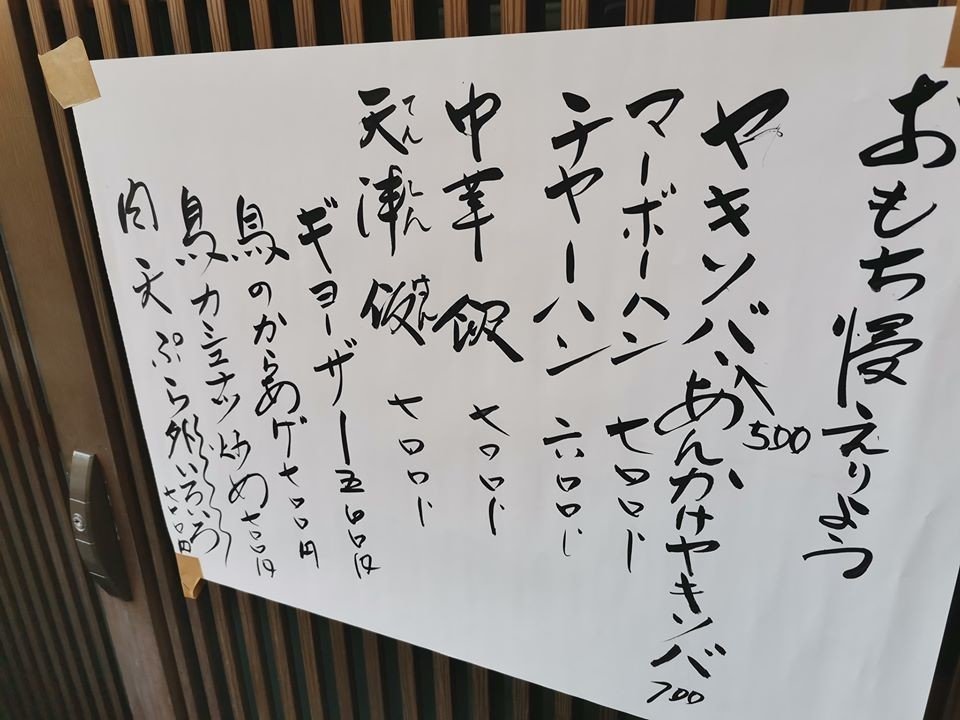 おもち慢えりよう
ヤキソバ、あんかけヤキソバ
500
700
マーボーハン 七〇〇円
チャーハン 六〇〇円
中華飯 七〇〇円
天津飯 七〇〇円
てんしんはん
ギョーザー五〇〇円
鳥のからあゲ七〇〇円
鳥カシュナッツ炒め七〇〇円
肉天ぷら外いろいろ
七〇〇円